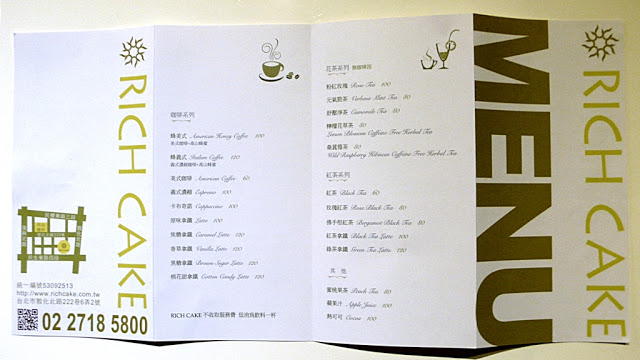 RICH CAKE
統一編號53092513
http://www.richcake.com.tw
台北市敦化北路222巷6弄2號
02 2718 5800
咖啡系列
蜂美式 American Honey Coffee 100
美式咖啡+高山蜂蜜
蜂義式 Italian Coffee 120
義式濃縮咖啡+高山蜂蜜
美式咖啡 American Coffee 60
義式濃縮 Espresso 100
卡布奇諾 Cappuccino 100
原味拿鐵 Latte 100
焦糖拿鐵 Caramel Latte 120
香草拿鐵 Vanilla Latte 120
黑糖拿鐵 Brown Sugar Latte 120
棉花甜拿鐵 Cotton Candy Latte 120
RICH CAKE 不收取服務費 低消為飲料一杯
花茶系列 無咖啡因
粉紅玫瑰 Rose Tea 100
元氣殿茶 Verbena Mint Tea 80
舒壓淨茶 Camomile Tea 80
檸檬花草茶 80
Lemon Blossom Caffeine Free Herbal Tea
桑莓情茶 80
Wild Raspberry Hibiscus Caffeine Free Herbal Tea
紅茶系列
紅茶 Black Tea 60
玫瑰紅茶 Rose Black Tea 80
佛手柑紅茶 Bergamot Black Tea 80
紅茶拿鐵 Black Tea Latte 100
綠茶拿鐵 Green Tea Latte 120
其他
蜜桃果茶 Peach Tea 80
蘋果汁 Apple Juice 100
熱可可 Cocoa 100
MENU
RICH CAKE